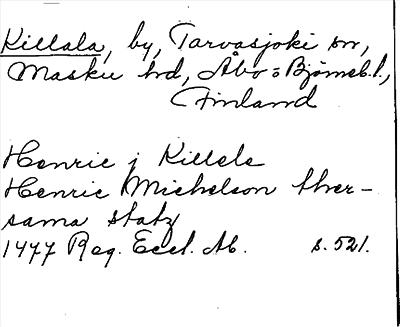 Killala, by, Tarvasjoki sn,
Masku hd, Åbo o Björneb. l.,
Finland
Henric j Killele
Henric Michelson ther-
sama statz
1477 Reg. Eccl. Ab. s. 521.